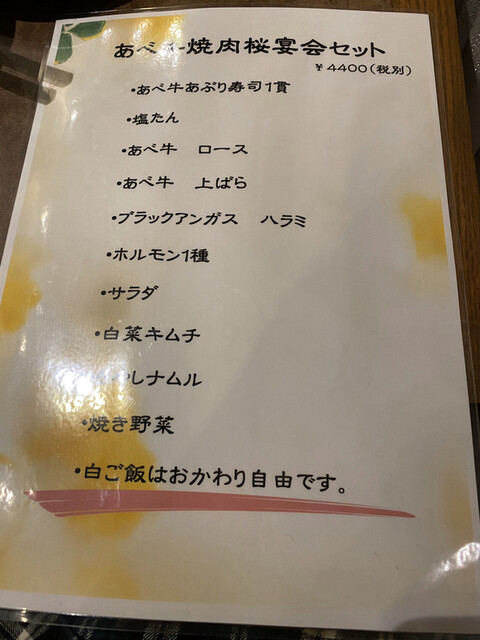 あべ牛焼肉桜宴会セット
¥4400(税別)
・あべ牛あぶり寿司1貫
・塩たん
・あべ牛 ロース
・あべ牛 上ばら
・ブラックアンガス ハラミ
・ホルモン1種
・サラダ
・白菜キムチ
しナムル
・焼き野菜
・白ご飯はおかわり自由です。